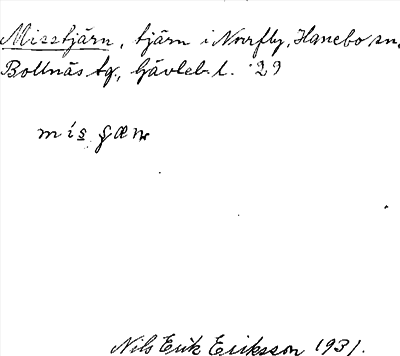 Misstjärn, tjärn i Norrfly, Hanebo sn,
Bollnäs tg., Gävleb. l. '29
mis
Nils Erik Eriksson 1931.